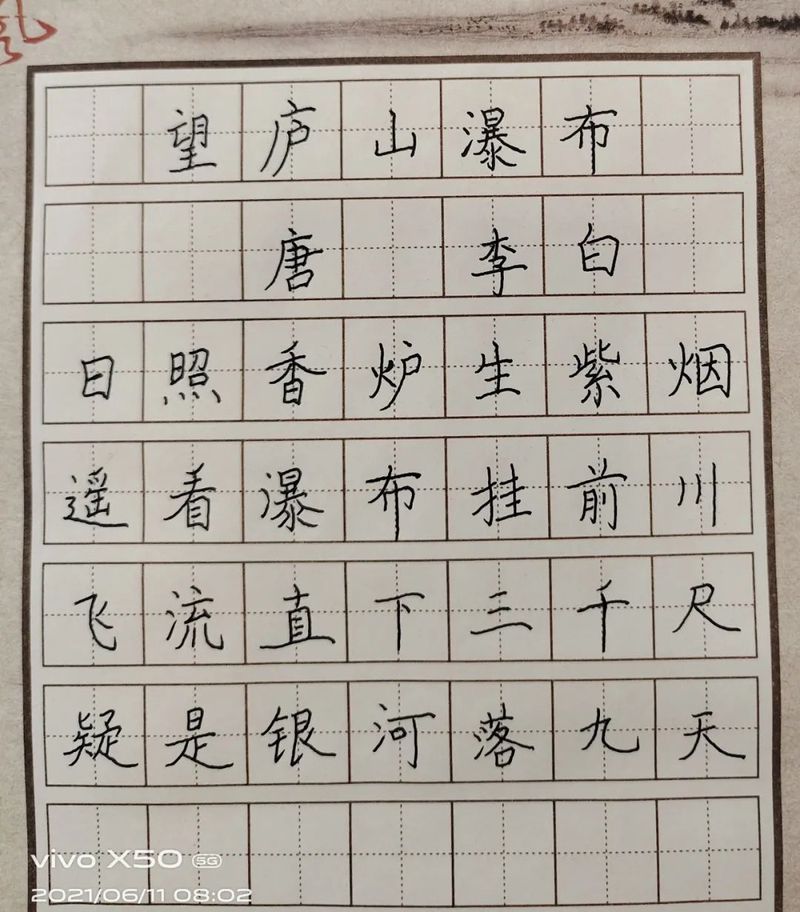 望庐山瀑布
唐 李白
日照香炉生紫烟
遥看瀑布挂前川
飞流直下三千尺
疑是银河落九天
vivo X50 5G
2021/06/11 08:02